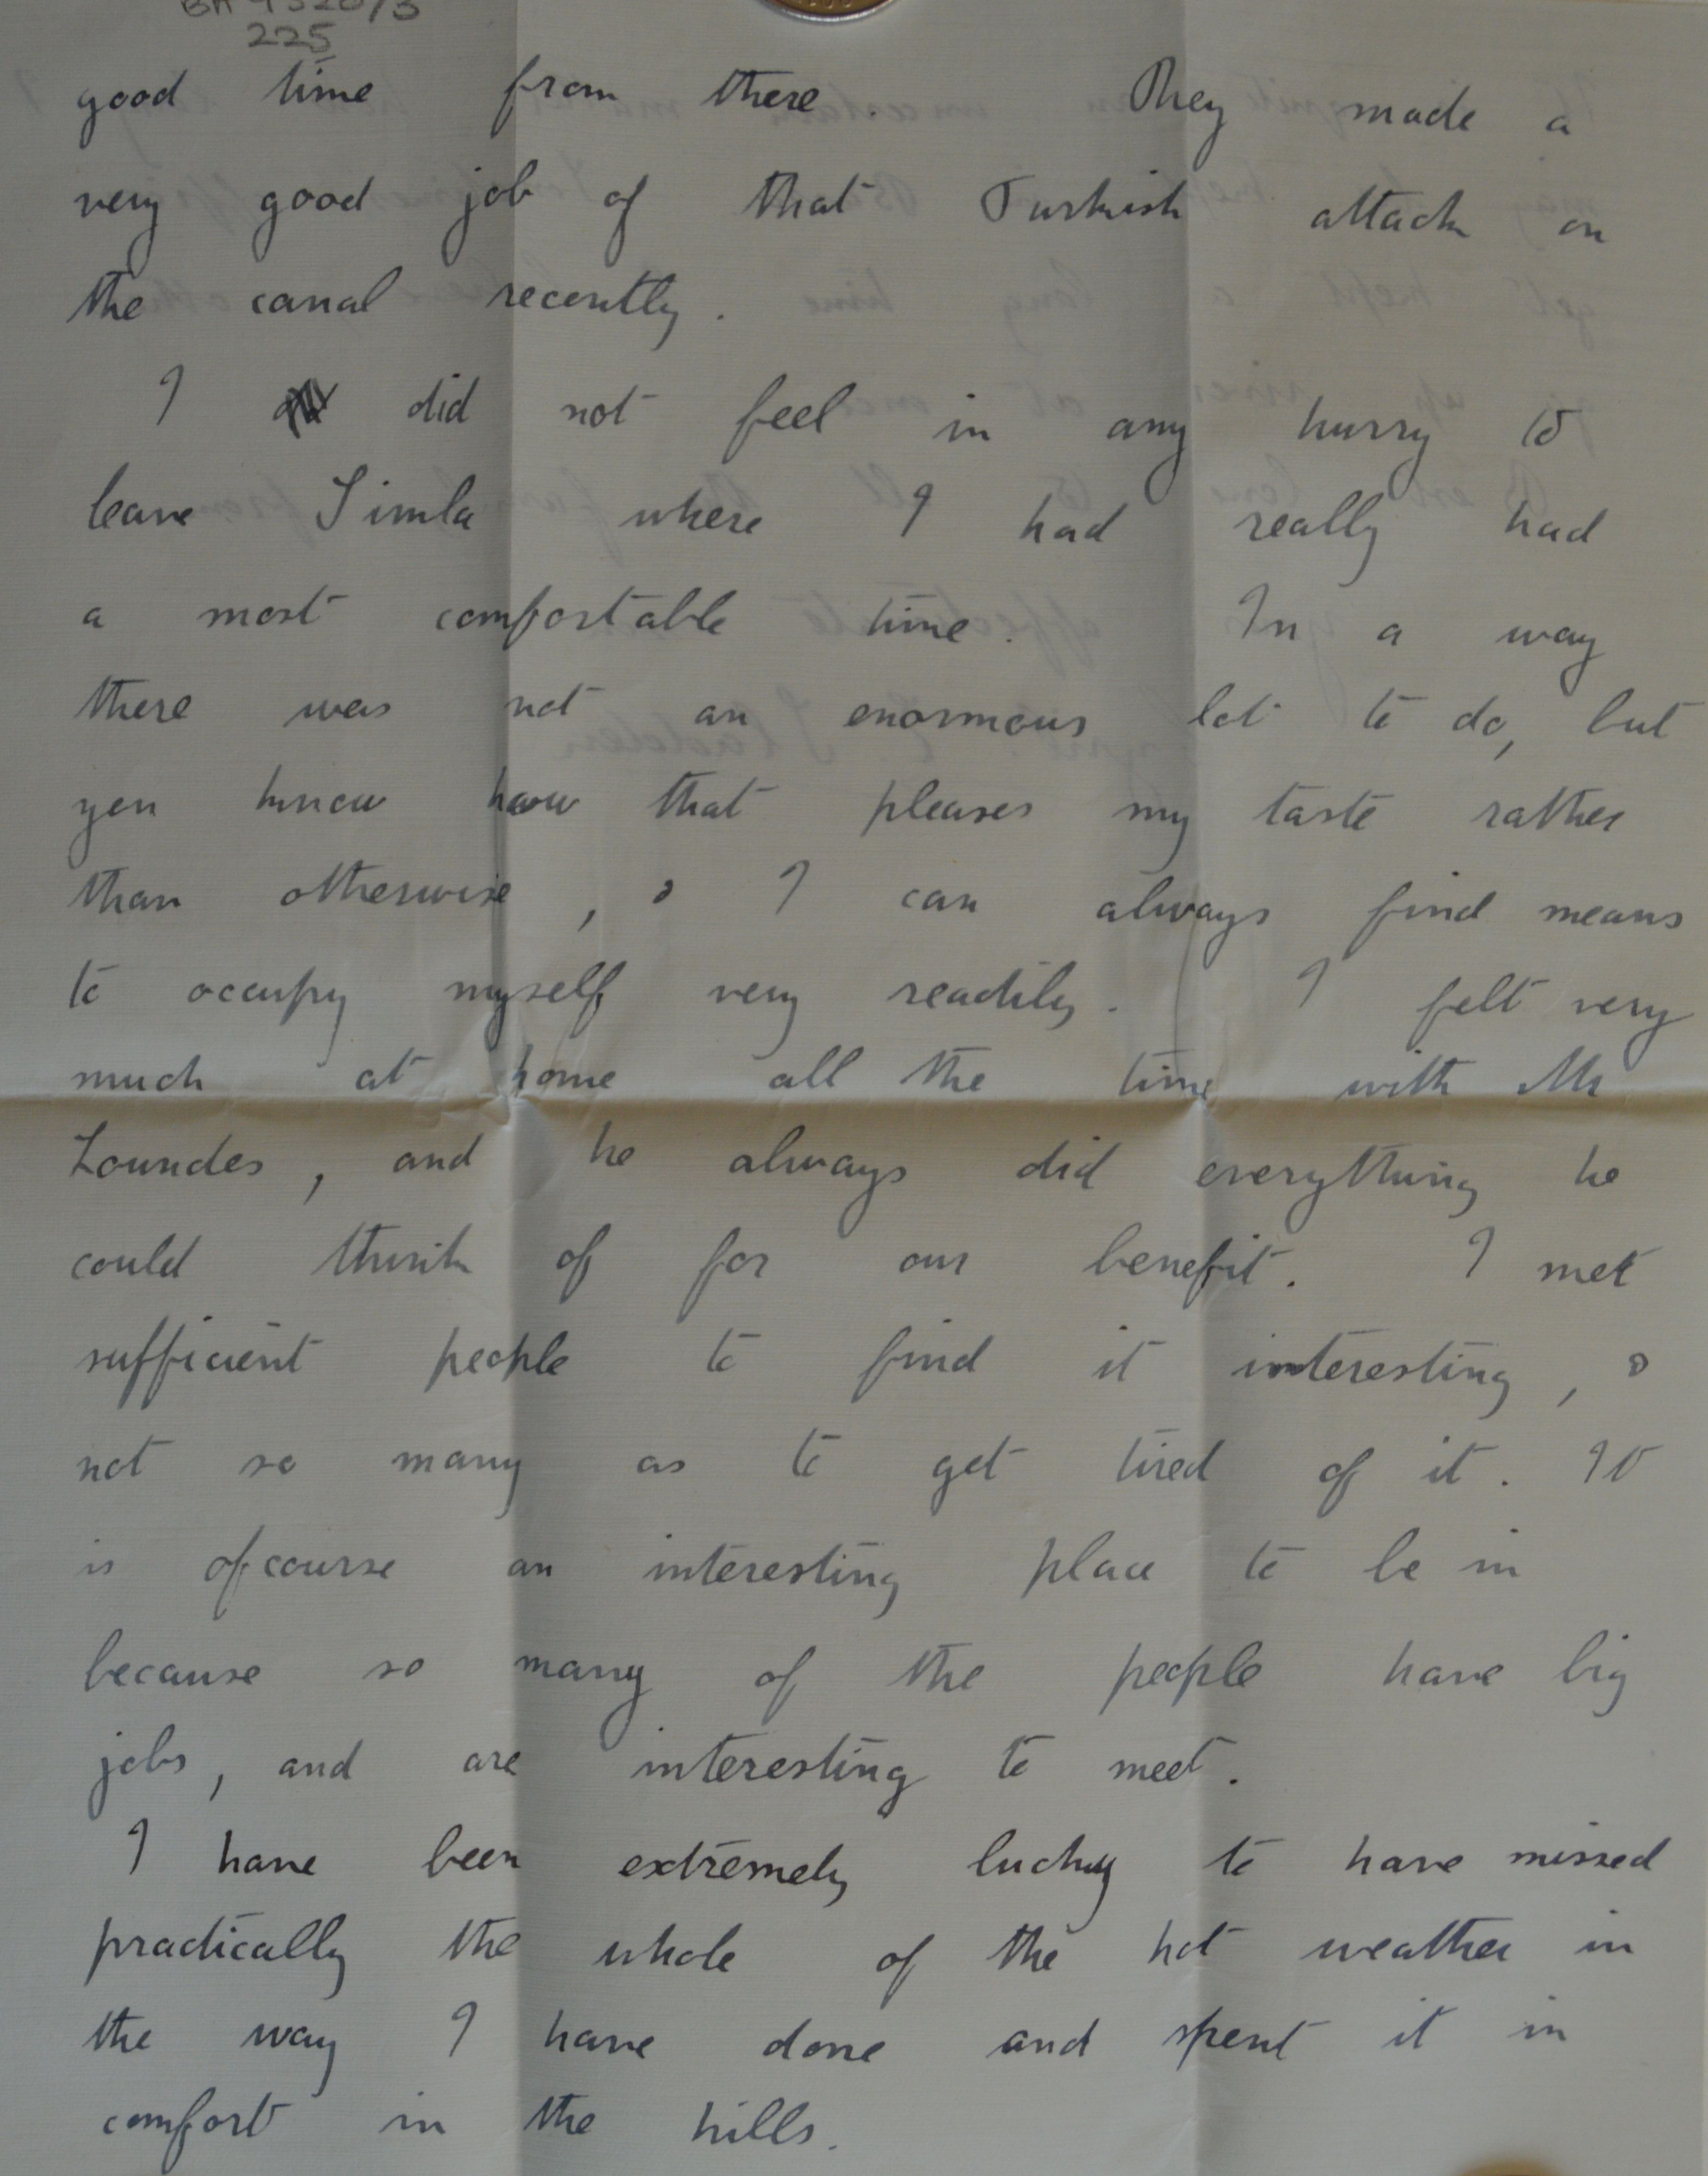 225
good time from there. They made a
very good job of that Turkish attack on
the canal recently.
I did not feel in any hurry to
leave Simla where I had really had
a most comfortable time. In a way
there was not an enormous lot to do, but
you know how that pleases my taste rather
than otherwise, & I can always find means
to occupy myself very readily. I felt very
much at home all the time with Mr
Lowndes, and he always did everything he
could think of for our benefit. I met
sufficient people to find it interesting, &
not so many as to get tired of it. It
is ofcourse an interesting place to be in
because so many of the people have big
jobs, and are interesting to meet.
I have been extremely lucky to have missed
practically the whole of the hot weather in
the way I have done and spent it in
comfort in the hills.